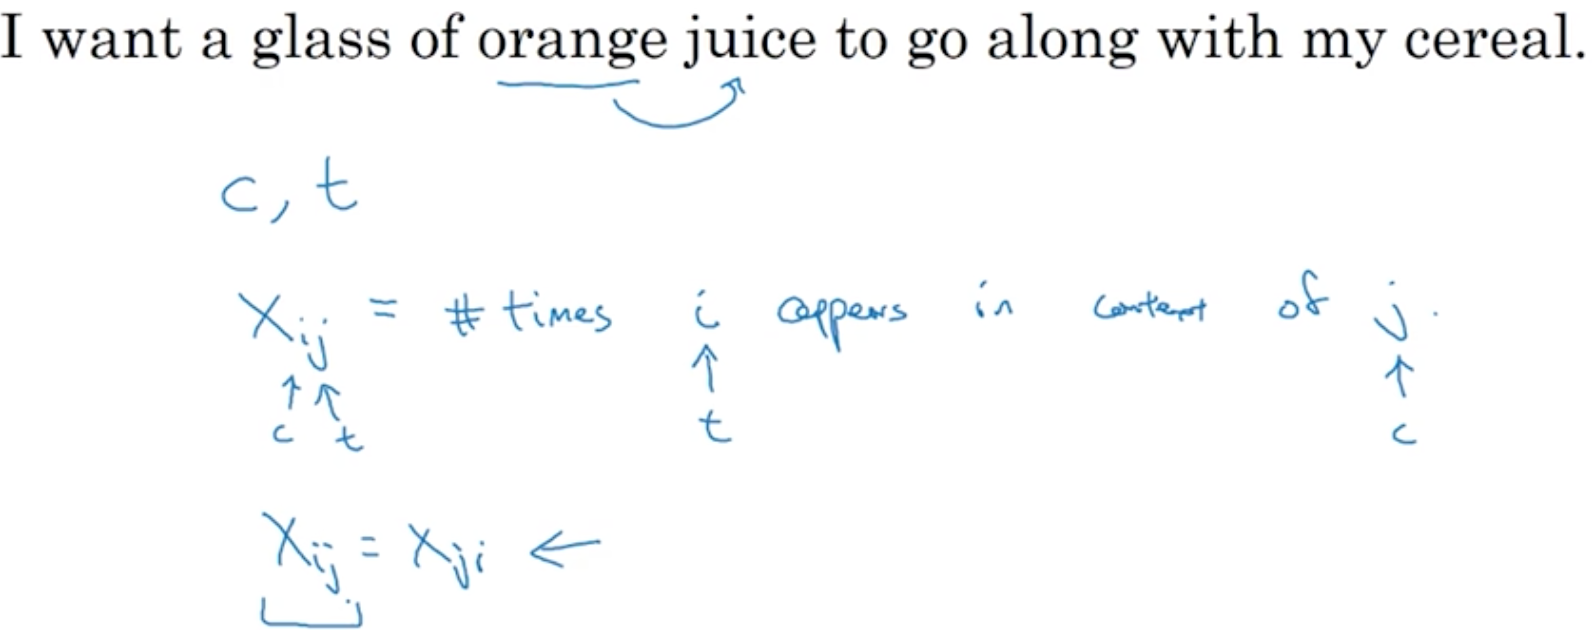 I want a glass of orange juice to go along with my cereal.
c, t
Xij = # times i appears in context of j.
c t t c
Xij = Xji ←